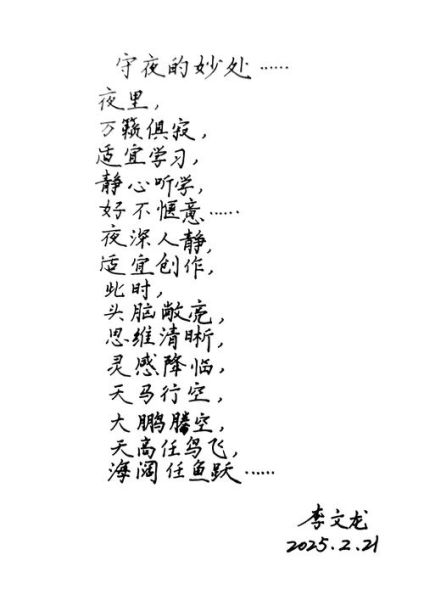 守夜的妙处……
夜里，
万籁俱寂，
适宜学习，
静心听学，
好不惬意……
夜深人静，
适宜创作，
此时，
头脑敞亮，
思维清晰，
灵感降临，
天马行空，
大鹏腾空，
天高任鸟飞，
海阔任鱼跃……
李文龙
2025.2.21